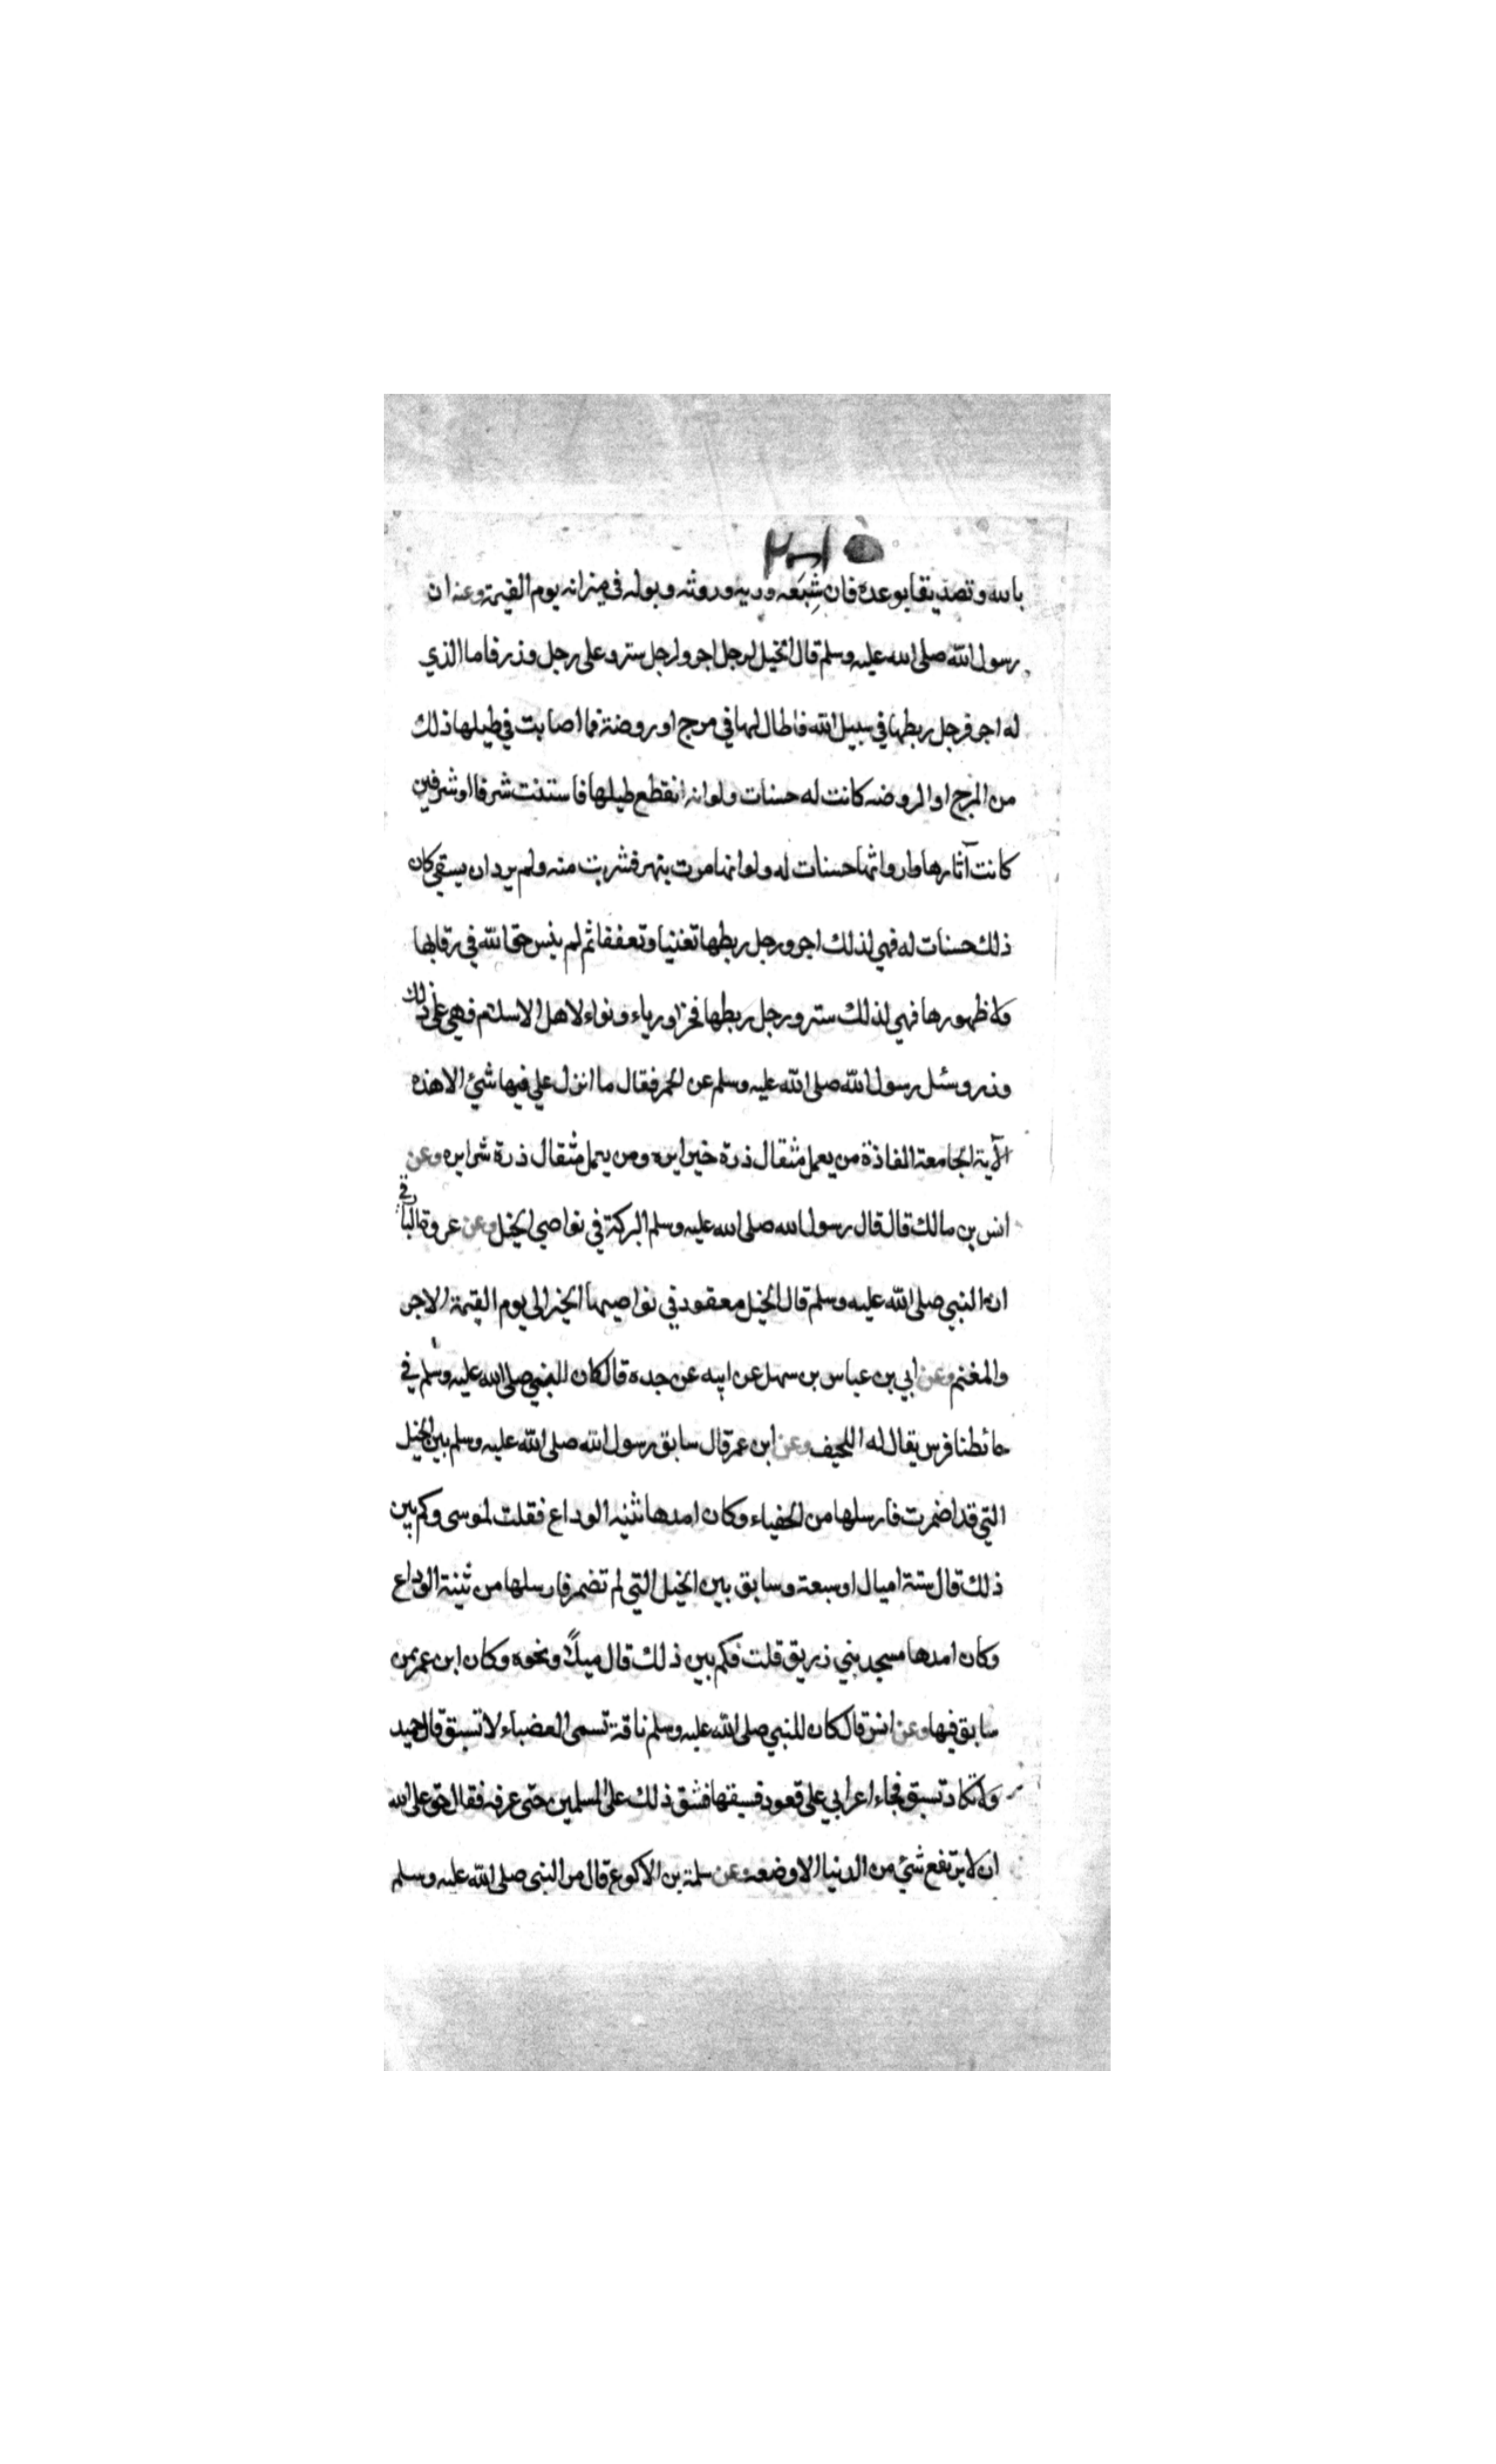 بالله وتصديقا بوعده فان شِبَعه وريه وروثه وبوله في ميزانه يوم القيمة وعنه ان
رسول الله صلى الله عليه وسلم قال الخيل لرجل اجر ولرجل ستر وعلى رجل وذر فاما الذي
له اجر فرجل ربطها في سبيل الله فاطال لها في مرج او روضة فما اصابت في طيلها ذلك
من المرج او الروضه كانت له حسنات ولو انه انقطع طيلها فاستنت شرفا او شرفين
كانت آثارها وارواثها حسنات له ولو انها مرت بنهر فشربت منه ولم يرد ان يسقي كان
ذلك حسنات له فهي لذلك اجر ورجل ربطها تغنيا وتعففا ثم لم ينس حق الله في رقابها
ولا ظهورها فهي لذلك ستر ورجل ربطها فخرا ورياء ونواء لاهل الاسلام فهي على ذلك
وذر وسئل رسول الله صلى الله عليه وسلم عن الحمر فقال ما انزل علي فيها شئ الا هذه
الآية الجامعة الفاذة من يعمل مثقال ذرة خيرا يره ومن يعمل مثقال ذرة شرا يره وعن
انس بن مالك قال قال رسول الله صلى الله عليه وسلم البركة في نواصي الخيل وعن عروة البارقي
ان النبي صلى الله عليه وسلم قال الخيل معقود في نواصيها الخير الى يوم القيمة الاجر
والمغنم وعن ابي بن عباس بن سهل عن ابيه عن جده قال كان للنبي صلى الله عليه وسلم في
حائطنا فرس يقال له اللحيف وعن ابن عمر قال سابق رسول الله صلى الله عليه وسلم بين الخيل
التي قد اضمرت فارسلها من الحفياء وكان امدها ثنيه الوداع فقلت لموسى وكم بين
ذلك قال ستة اميال او سبعة وسابق بين الخيل التي لم تضمر فارسلها من ثنية الوداع
وكان امدها مسجد بني زريق قلت فكم بين ذلك قال ميلاً ونحوه وكان ابن عمر ممن
سابق فيها وعن انس قال كان للنبي صلى الله عليه وسلم ناقة تسمى العضباء لا تسبق قال حميد
ولا تكاد تسبق فجاء اعرابي على قعود فسبقها فشق ذلك على المسلمين حتى عرفه فقال حق على الله
ان لا يرتفع شئ من الدنيا الا وضعه وعن سلمة بن الاكوع قال مر النبي صلى الله عليه وسلم